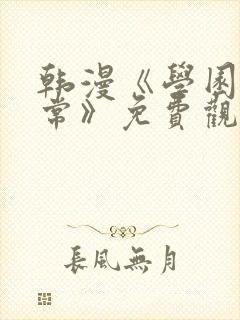 韩漫《學园
常》免費觀
長風無月